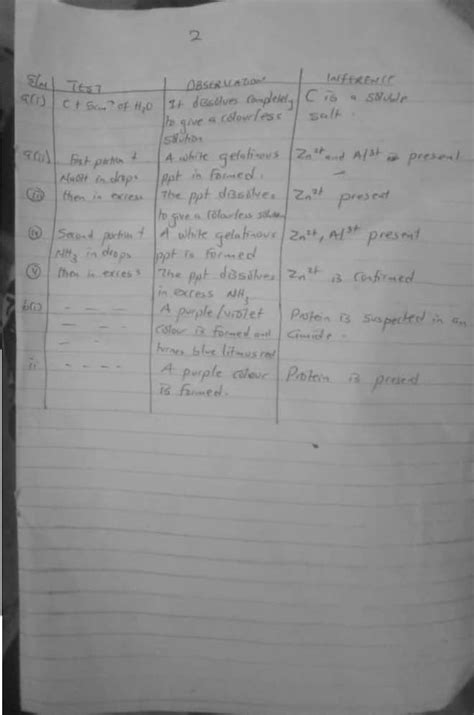 2
S/N TEST OBSERVATION INFERENCE
a(i) C + 5cm³ of H₂O It dissolves completely C is a soluble
to give a colourless salt.
solution
a(ii) First portion + A white gelatinous Zn²⁺ and Al³⁺ is present
NaOH in drops ppt is formed.
(iii) then in excess The ppt dissolves Zn²⁺ present
to give a colourless solution
(iv) Second portion + A white gelatinous Zn²⁺, Al³⁺ present
NH₃ in drops ppt is formed
(v) then in excess The ppt dissolves Zn²⁺ is confirmed
in excess NH₃
b(i) - - - A purple/violet Protein is suspected in an
- - - colour is formed and
- - turns blue litmus red
ii - - - - A purple colour Protein is present
is formed.